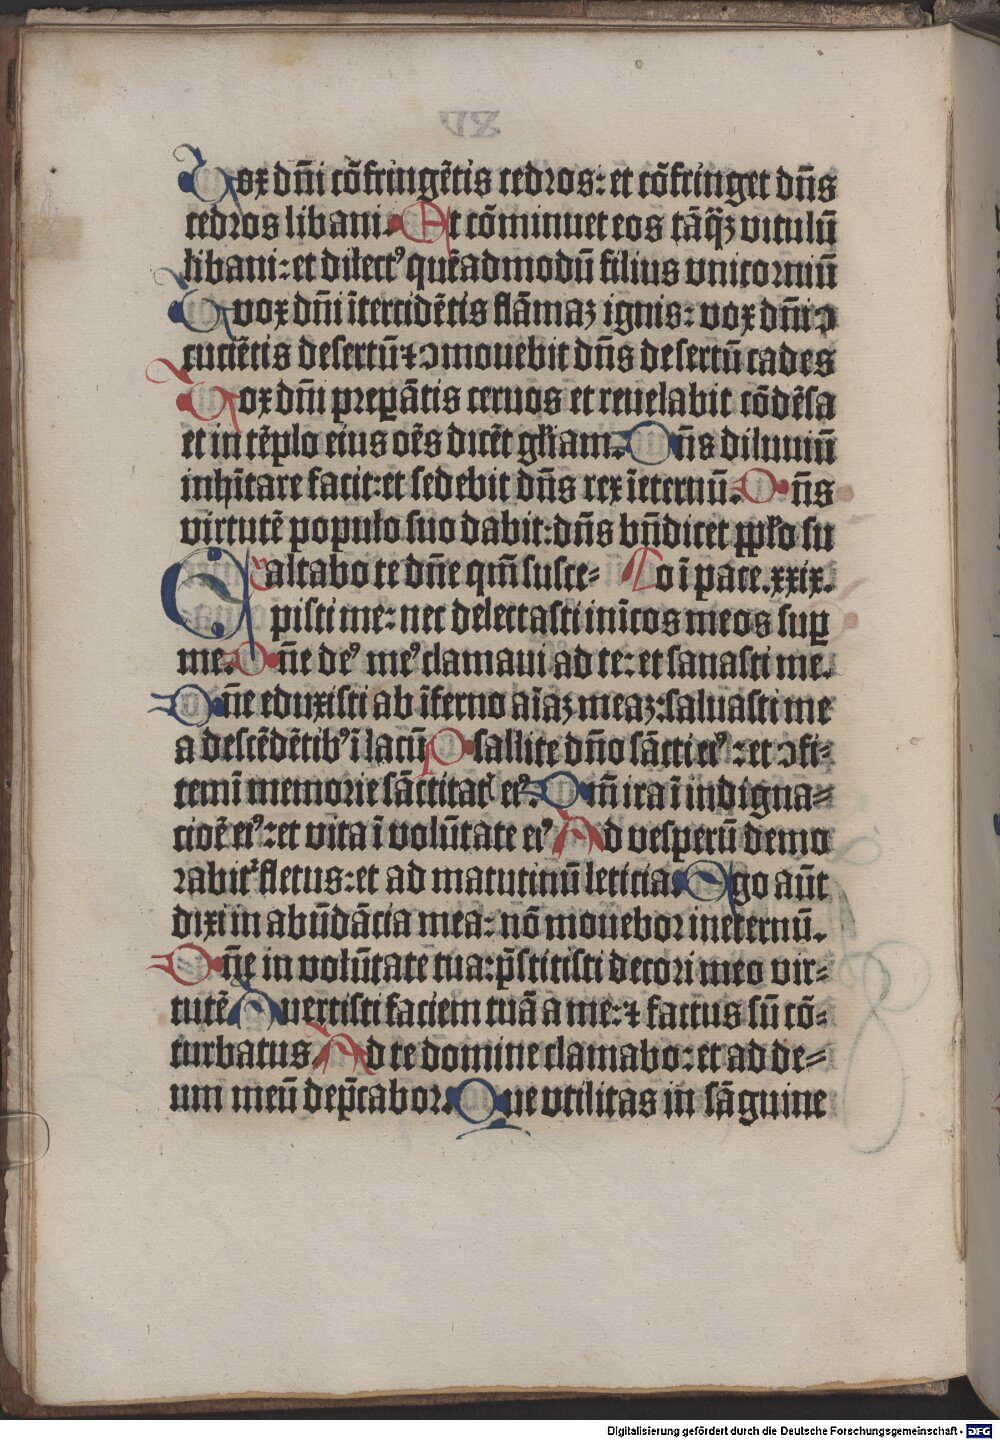 Vox dñi cõfringẽtis cedros: et cõfringet dñs
cedros libani. Et cõminuet eos tãq̃ꝫ vitulũ
libani: et dilectꝰ quẽadmodũ filius vnicorniũ
Vox dñi ĩtercidẽtis flãmaꝫ ignis: vox dñi ↄ
cuciẽtis desertũ ⁊ ↄmouebit dñs desertũ cades
Vox dñi prepãtis ceruos et reuelabit cõdẽsa
et in tẽplo eius oẽs dicẽt gl̃iam. Dñs diluuiũ
inhĩtare facit: et sedebit dñs rex ĩeternũ. Dñs
virtutẽ populo suo dabit: dñs bñdicet ppl̃o su
Exaltabo te dñe qm̃ susce⸗ o ĩ pace. xxix.
pisti me: nec delectasti inĩcos meos suꝑ
me. Dñe deꝰ meꝰ clamaui ad te: et sanasti me.
Dñe eduxisti ab ĩferno aĩaꝫ meaꝫ: saluasti me
a descẽdẽtibꝰ ĩ lacũ Psallite dño sãcti eiꝰ: et ↄfi⸗
temĩ memorie sãctitatꝭ eiꝰ. Qm̃ ira ĩ indigna⸗
tioẽ eiꝰ: et vita ĩ volũtate eiꝰ Ad vesperũ demo
rabit᷑ fletus: et ad matutinũ leticia. Ego aũt
dixi in abũdãcia mea: nõ mouebor in eternũ.
Dñe in volũtate tua: p̃stitisti decori meo vir⸗
tutẽ Auertisti faciem tuã a me: ⁊ factus sũ cõ⸗
turbatus. Ad te domine clamabo: et ad de⸗
um meũ dep̃cabor. Que vtilitas in sãguine
Digitalisierung gefördert durch die Deutsche Forschungsgemeinschaft - DFG